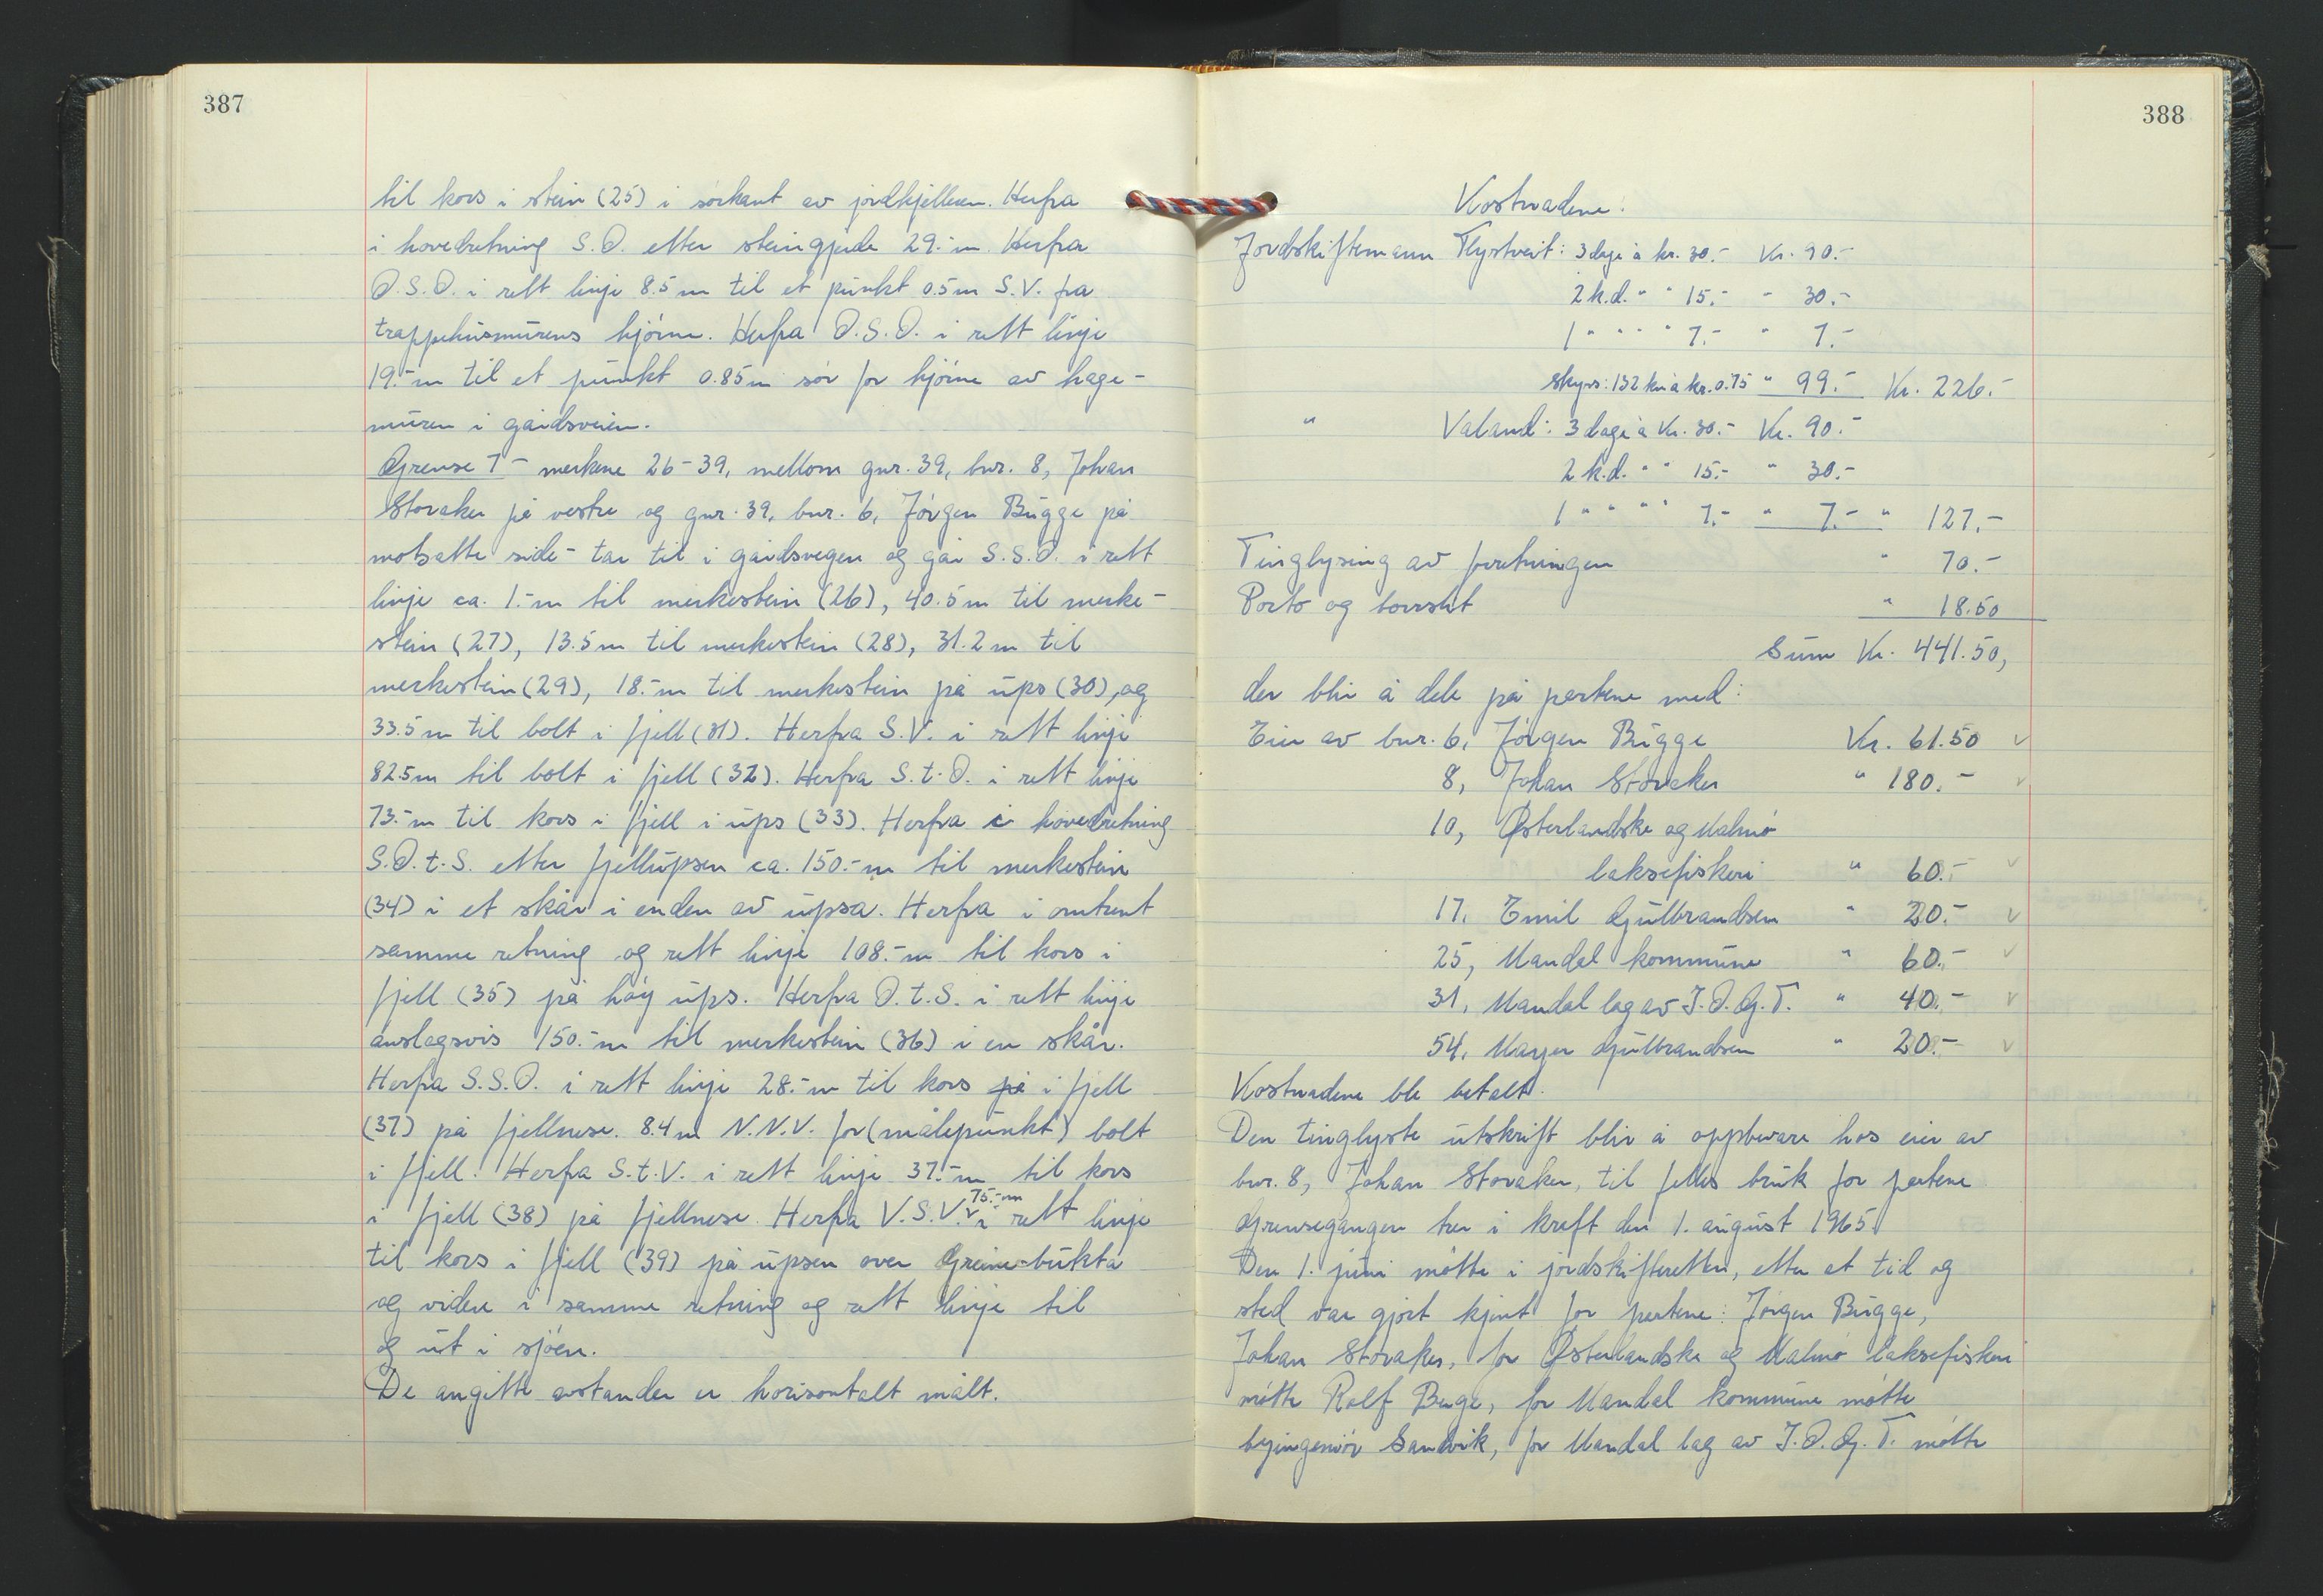 387
til kors i stein (25) i sørkant av jordkjelleren. Herfra
i hovedretning S.Ø. etter steingjerde 29.- m. Herfra
Ø.S.Ø. i rett linje 8.5 m til et punkt 0.5 m S.V. fra
trappehusmurens hjørne. Herfra Ø.S.Ø. i rett linje
19.- m til et punkt 0.85 m sør for hjørne av hage-
muren i gårdsveien.
Grense 7 - merkene 26-39, mellom gnr. 39, bnr. 8, Johan
Storaker på vestre og gnr. 39, bnr. 6, Jørgen Bugge på
motsatte side - tar til i gårdsvegen og går S.S.Ø. i rett
linje ca. 1.- m til merkestein (26), 40.5 m til merke-
stein (27), 13.5 m til merkestein (28), 31.2 m til
merkestein (29), 18.- m til merkestein på ups (30), og
33.5 m til bolt i fjell (31). Herfra S.V. i rett linje
82.5 m til bolt i fjell (32). Herfra S.t.Ø. i rett linje
73.- m til kors i fjell i ups (33). Herfra i hovedretning
S.Ø.t.S. etter fjellupsen ca. 150.- m til merkestein
(34) i et skår i enden av upsa. Herfra i omtrent
samme retning og rett linje 108.- m til kors i
fjell (35) på høg ups. Herfra Ø.t.S. i rett linje
anslagsvis 150.- m til merkestein (36) i en skår.
Herfra S.S.Ø. i rett linje 28.- m til kors på i fjell
(37) på fjellnese. 8.4 m N.N.V. for (målepunkt) bolt
i fjell. Herfra S.t.V. i rett linje 37.- m til kors
i fjell (38) på fjellnese. Herfra V.S.V. 75.- m i rett linje
til kors i fjell (39) på upsen over Greine-bukta
og videre i samme retning og rett linje til
og ut i sjøen.
De angitte avstander er horisontalt målt.
388
Kostnadene:
Jordskiftemann Flystveit: 3 dage à kr. 30.- Kr. 90.-
2 k.d. " " 15.- " 30.-
1 " " " " 7.- " 7.-
skyss: 132 km à kr. 0.75 " 99.- Kr. 226.-
" Valand: 3 dage à Kr. 30.- Kr. 90.-
2 k.d. " " 15.- " 30.-
1 " " " " 7.- " 7.- " 127.-
Tinglysing av forretningen " 70.-
Porto og " 18.50
Sum Kr. 441.50,
der blir å dele på partene med:
Eier av bnr. 6, Jørgen Bugge Kr. 61.50 v
8, Johan Storaker " 180.- v
10, Østerlandske og Malmø
laksefiskeri " 60.- v
17, Emil Gulbrandsen " 20.- v
25, Mandal kommune " 60.- v
31, Mandal lag av I.O.G.T. " 40.- v
54, Gulbrandsen " 20.- v
Kostnadene ble betalt.
Den tinglyste utskrift blir å oppbevare hos eier av
bnr. 8, Johan Storaker, til felles bruk for partene
Grensegangen trer i kraft den 1. august 1965.
Den 1. juni møtte i jordskifteretten, etter at tid og
sted var gjort kjent for partene: Jørgen Bugge,
Johan Storaker, for Østerlandske og Malmø laksefiskeri
møtte Rolf Buge, for Mandal kommune møtte
byingeniør Sandvik, for Mandal lag av I.O.G.T. møtte